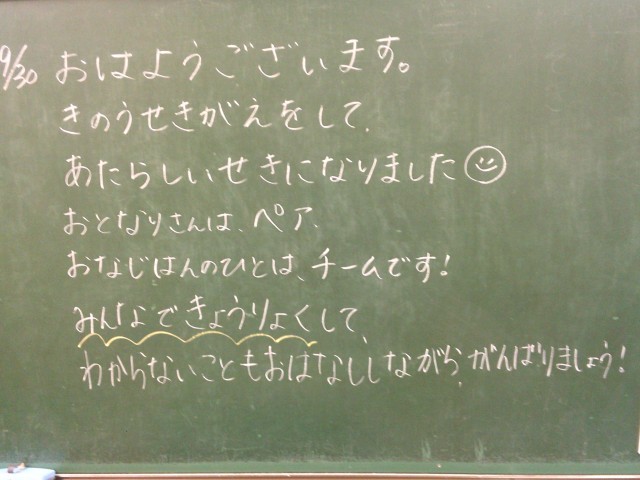 9/30 おはようございます。
きのうせきがえをして、
あたらしいせきになりました
おとなりさんは、ペア、
おなじはんのひとは、チームです!
みんなできょうりょくして、
わからないこともおはなししながら、がんばりましょう!